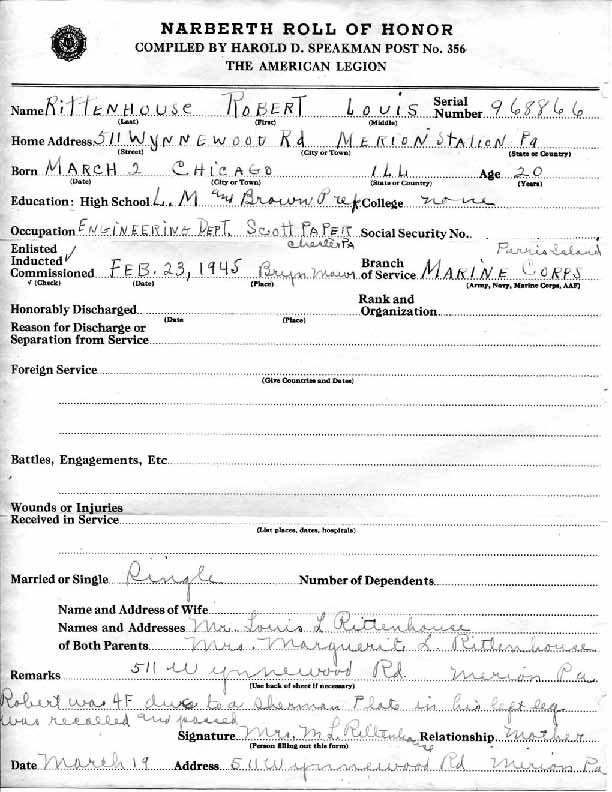 NARBERTH ROLL OF HONOR
COMPILED BY HAROLD D. SPEAKMAN POST No. 356
THE AMERICAN LEGION
Name RITTENHOUSE ROBERT LOUIS Serial Number 968866
(Last) (First) (Middle)
Home Address 511 WYNNEWOOD Rd MERION STATION Pa
(Street) (City or Town) (State or Country)
Born MARCH 2 CHICAGO ILL Age 20
(Date) (City or Town) (State or Country) (Years)
Education: High School L. M and Brown Prep College none
Occupation ENGINEERING DEPT. SCOTT PAPER Social Security No.
Chester PA Parris Island
Enlisted
Inducted √
Commissioned FEB. 23, 1945 Bryn Mawr Branch of Service MARINE CORPS
√ (Check) (Date) (Place) (Army, Navy, Marine Corps, AAF)
Honorably Discharged Rank and Organization
(Date (Place)
Reason for Discharge or
Separation from Service
Foreign Service
(Give Countries and Dates)
Battles, Engagements, Etc.
Wounds or Injuries
Received in Service
(List places, dates, hospitals)
Married or Single Single Number of Dependents
Name and Address of Wife
Names and Addresses Mr. Louis L Rittenhouse
of Both Parents Mrs. Marguerit L. Rittenhouse
Remarks 511 Wynnewood Rd Merion Pa
(Use back of sheet if necessary)
Robert was 4F due to a Sherman Plate in his left leg
was recalled and passed
Signature Mrs. M L Rittenhouse Relationship Mother
(Person filling out this form)
Date March 19 Address 511 Wynnewood Rd Merion Pa